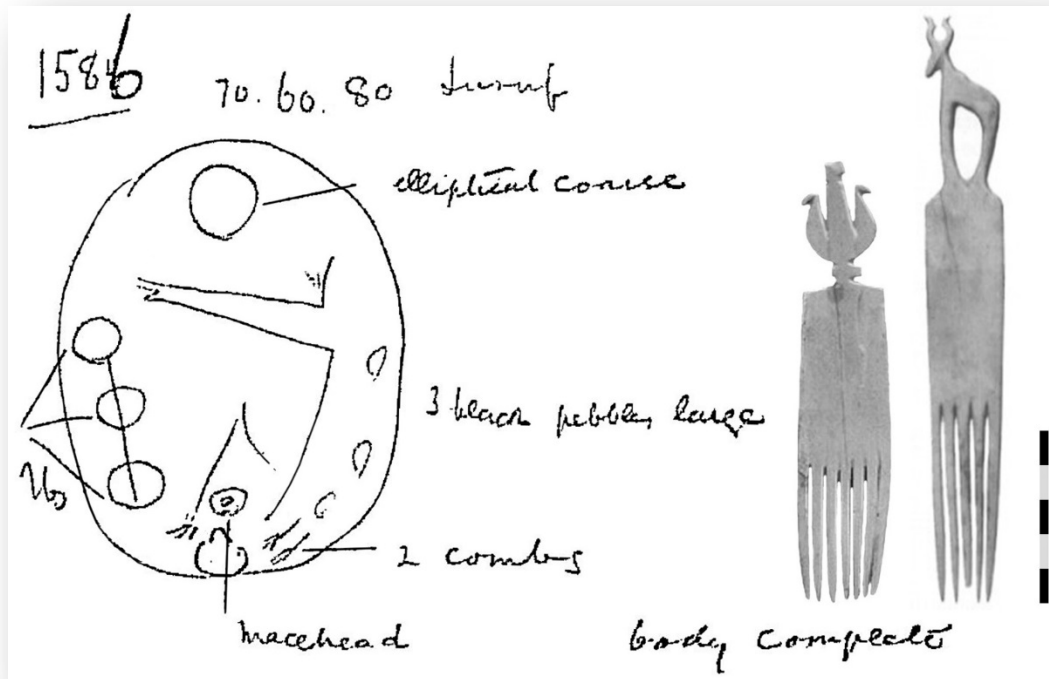 1586
70. 60. 80
elliptical coarse
3 black pebbles large
2 combs
macehead
body complete